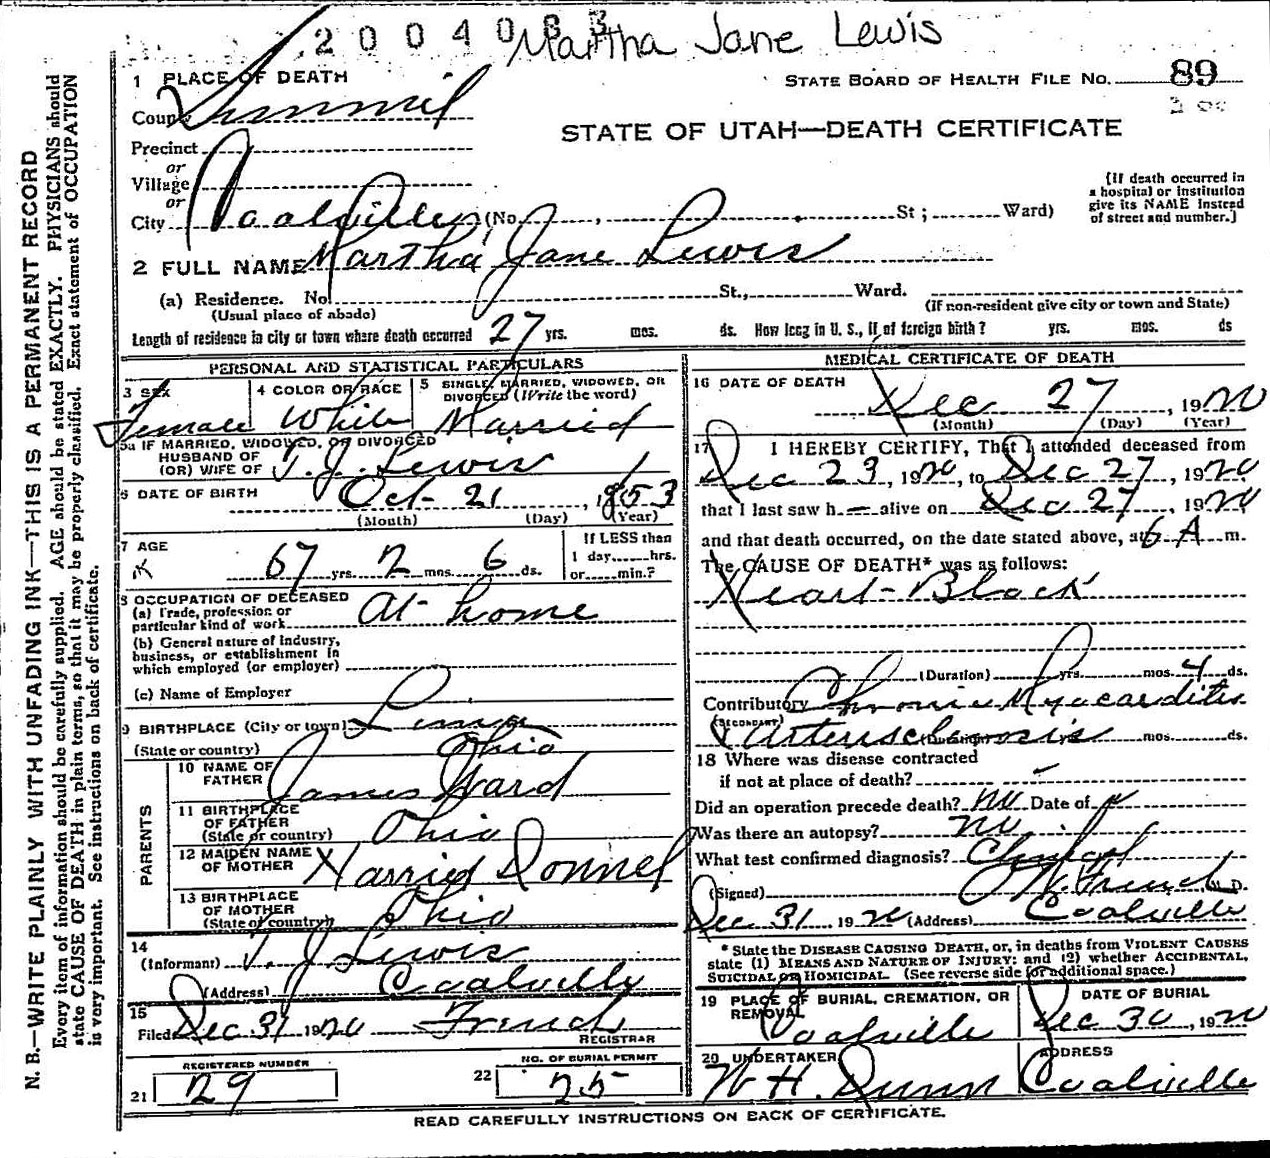 2004083
Martha Jane Lewis
1 PLACE OF DEATH
STATE BOARD OF HEALTH FILE No. 89
County Summit
STATE OF UTAH—DEATH CERTIFICATE
Precinct
or
Village
or
City Coalville (No. , St; Ward)
(If death occurred in a hospital or institution give its NAME instead of street and number.)
2 FULL NAME Martha Jane Lewis
(a) Residence. No. St., Ward.
(Usual place of abode)
(If non-resident give city or town and State)
Length of residence in city or town where death occurred 27 yrs. mos. ds. How long in U. S., if of foreign birth? yrs. mos. ds
PERSONAL AND STATISTICAL PARTICULARS
3 SEX Female
4 COLOR OR RACE White
5 SINGLE, MARRIED, WIDOWED, OR DIVORCED (Write the word) Married
5a IF MARRIED, WIDOWED, OR DIVORCED
HUSBAND OF
(OR) WIFE OF T. J. Lewis
6 DATE OF BIRTH Oct 21, 1853
(Month) (Day) (Year)
7 AGE
67 yrs. 2 mos. 6 ds.
If LESS than
1 day hrs.
or min.?
8 OCCUPATION OF DECEASED
(a) Trade, profession or
particular kind of work At home
(b) General nature of industry,
business, or establishment in
which employed (or employer)
(c) Name of Employer
9 BIRTHPLACE (City or town) Lima
(State or country) Ohio
PARENTS
10 NAME OF FATHER James Ward
11 BIRTHPLACE OF FATHER (State or country) Ohio
12 MAIDEN NAME OF MOTHER Harried Donnel
13 BIRTHPLACE OF MOTHER (State or country) Ohio
14
(Informant) T. J. Lewis
(Address) Coalville
15
Filed Dec 31 1920 French
REGISTRAR
REGISTERED NUMBER
21 29
NO. OF BURIAL PERMIT
22 25
MEDICAL CERTIFICATE OF DEATH
16 DATE OF DEATH
Dec 27, 1920
(Month) (Day) (Year)
17 I HEREBY CERTIFY, That I attended deceased from
Dec 23, 1920, to Dec 27, 1920
that I last saw h alive on Dec 27, 1920
and that death occurred, on the date stated above, at 6 A m.
The CAUSE OF DEATH* was as follows:
Heart-Block
(Duration) yrs. mos. 4 ds.
Contributory Chronic Myocarditis
(SECONDARY) Arteriosclerosis mos. ds.
18 Where was disease contracted
if not at place of death?
Did an operation precede death? no Date of
Was there an autopsy? no
What test confirmed diagnosis?
(Signed) French M. D.
Dec 31 1920 (Address) Coalville
* State the DISEASE CAUSING DEATH, or, in deaths from VIOLENT CAUSES
state (1) MEANS AND NATURE OF INJURY; and (2) whether ACCIDENTAL,
SUICIDAL, or HOMICIDAL. (See reverse side for additional space.)
19 PLACE OF BURIAL, CREMATION, OR REMOVAL
Coalville
DATE OF BURIAL
Dec 30, 1920
20 UNDERTAKER
W H. Dunn
ADDRESS
Coalville
READ CAREFULLY INSTRUCTIONS ON BACK OF CERTIFICATE.
N. B.—WRITE PLAINLY WITH UNFADING INK—THIS IS A PERMANENT RECORD
Every item of information should be carefully supplied. AGE should be stated EXACTLY. PHYSICIANS should
state CAUSE OF DEATH in plain terms, so that it may be properly classified. Exact statement of OCCUPATION
is very important. See instructions on back of certificate.